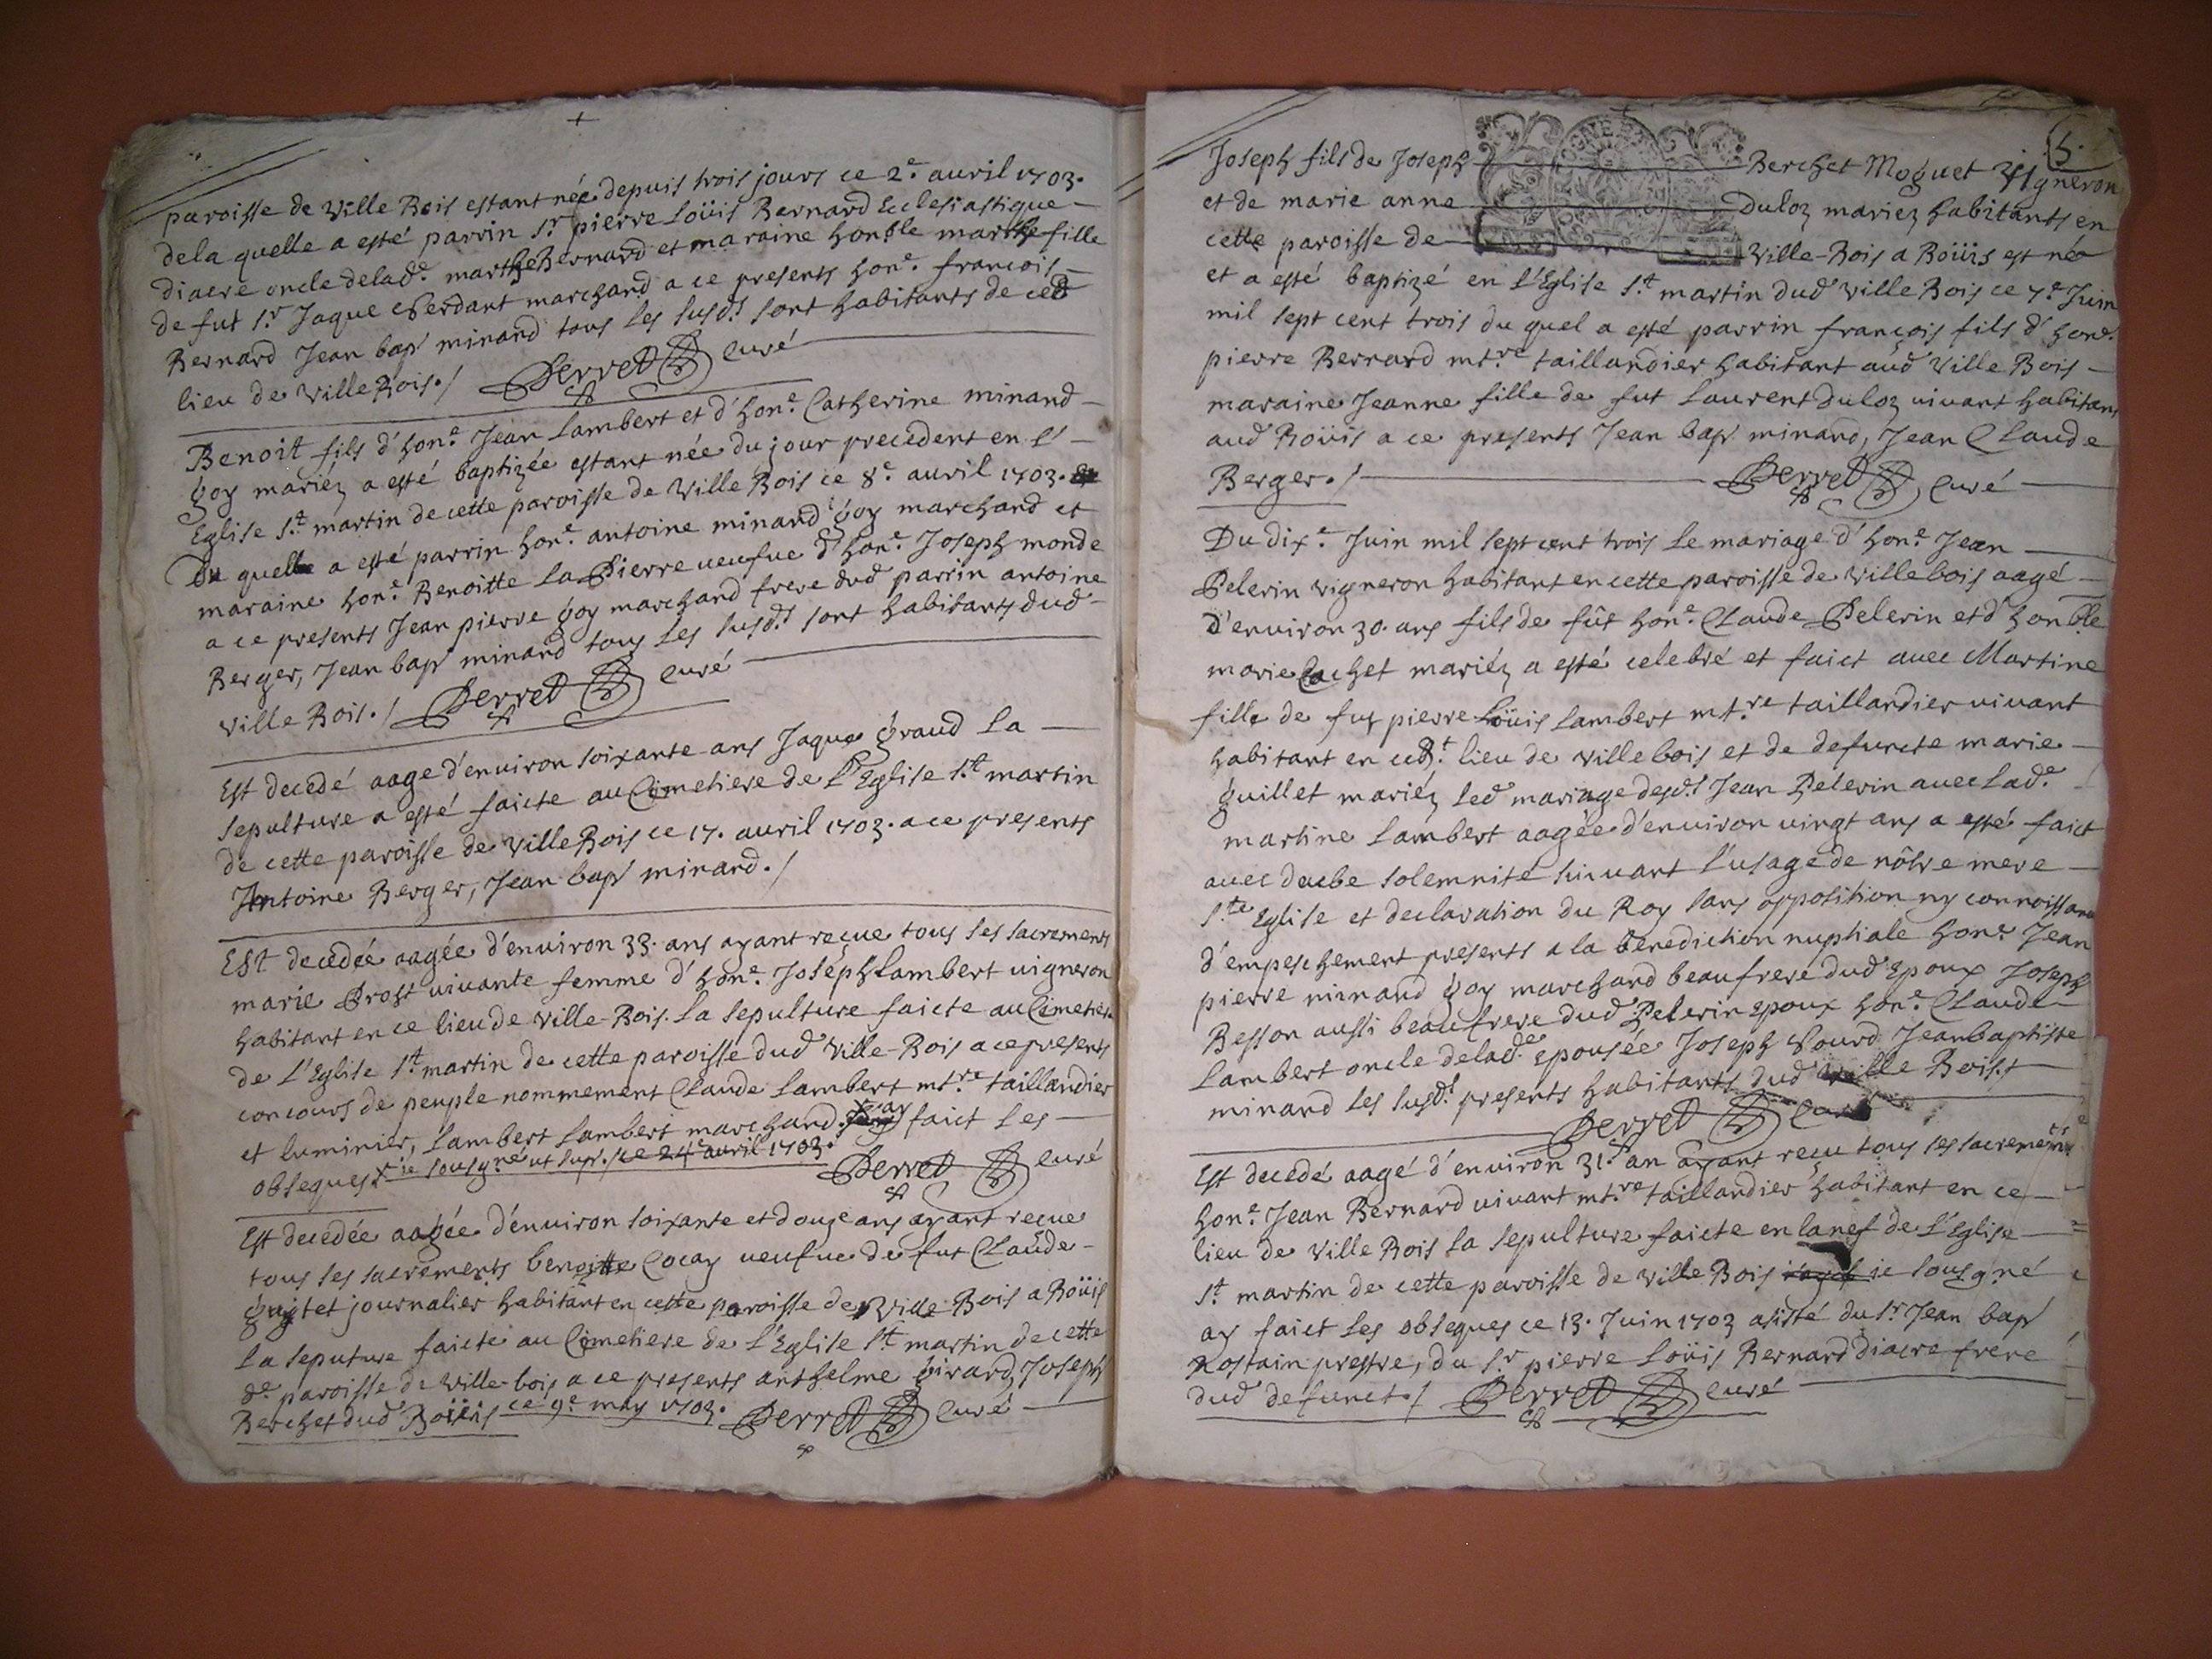 paroisse de Ville Bois estant née depuis trois jours ce 2.e auril 1703.
dela quelle a esté parrin S.r pierre Loüis Bernard Ecclesiastique
diacre oncle delad.e marthe Bernard et maraine honble marthe fille
de fut S.r Jaque marchand a ce presents hon.e francois
Bernard Jean bap minand tous les susd.ts sont habitants de ced
lieu de Ville Bois./ Perret curé
Benoit fils d'hon.e Jean Lambert et d'hon.e Catherine minand
goy mariéz a esté baptizée estant née du jour precedent en l'
Eglise S.t martin de cette paroisse de Ville Bois ce 8.e auril 1703.
Du quelle a esté parrin hon.e antoine minand goy marchand et
maraine hon.e Benoitte La Pierre ueufue d'hon.e Joseph monde
a ce presents Jean pierre goy marchand frere dud parrin antoine
Berger, Jean bap minand tous les susd.ts sont habitants dud
ville Bois./ Perret curé
Est decedé aage d'enuiron soixante ans Jaque graud La
sepulture a esté faicte au Cimetiere de L'Eglise S.t martin
de cette paroisse de Ville Bois ce 17. auril 1703. a ce presents
Antoine Berger, Jean bap minard./
Est decedée aagée d'enuiron 33. ans ayant reçue tous ses sacrements
marie Prost uiuante femme d'hon.e Joseph Lambert uigneron
habitant en ce lieu de Ville-Bois. La sepulture faicte au Cimetiere
de L'Eglise S.t martin de cette paroisse dud Ville-Bois a ce presents
concours de peuple nommement Claude Lambert mt.re taillandier
et luminier, Lambert Lambert marchand ay faict les
obseques x ie sousgné ut sup./ ce 24 auril 1703. Perret curé
Est decedée aagée d'enuiron soixante et douze ans ayant reçue
tous ses sacrements benoitte Cocay ueufue de fut Claude
guytet journalier habitant en cette paroisse de Ville Bois a Roüis
La seputure faicte au Cimetiere de l'Eglise S.t martin de cette
d.e paroisse de Ville-bois a ce presents anthelme girard, Joseph
Berchet dud Roüis ce 9.e may 1703. Perret curé
5.
Joseph fils de Joseph Berchet Moguet Vigneron
et de marie anne Duloz mariez habitants en
cette paroisse de Ville-Bois a Roüis est né
et a esté baptizé en L'Eglise S.t martin dud Ville Bois ce 7.e Juin
mil sept cent trois du quel a esté parrin françois fils d'hon.e
pierre Bernard mt.re taillandier habitant aud Ville Bois
maraine Jeanne fille de fut Laurent duloz uiuant habitant
aud Roüis a ce presents Jean bap minand, Jean Claude
Berger./ Perret Curé
Du dix.e Juin mil sept cent trois Le mariage d'hon.e Jean
Pelerin vigneron habitant en cette paroisse de Villebois aagé
d'enuiron 30. ans fils de fût hon.e Claude Pelerin et d'honble
marie Cachet mariéz a esté celebré et faict auec Martine
fille de fut pierre Loüis Lambert mt.re taillandier uiuant
habitant en ced.t lieu de Villebois et de defuncte marie
guillet mariéz led mariage desd.ts Jean Pelerin auec lad.e
martine Lambert aagée d'enuiron uingt ans a esté faict
auec deube solemnité suiuant l'usage de nôtre mere
S.te Eglise et declaration du Roy sans opposition ny connoissance
d'empeschement presents a la benediction nuptiale hon.e Jean
pierre minand goy marchand beaufrere dud Epoux Joseph
Besson aussi beaufrere dud Pelerin epoux hon.e Claude
Lambert oncle delad.e epousée Joseph Jean baptiste
minand les susd.ts presents habitants dud Ville Bois./
Perret Curé
Est decedé aagé d'enuiron 31. an ayant reçu tous ses sacrements
hon.e Jean Bernard uiuant mt.re taillandier habitant en ce
lieu de Ville Bois La sepulture faicte en la nef de L'Eglise
S.t martin de cette paroisse de Ville Bois ie sousgné
ay faict les obseques ce 13. Juin 1703 asisté du S.r Jean bap
Rostain prestre, du S.r pierre Loüis Bernard diacre frere
dud defunct./ Perret curé